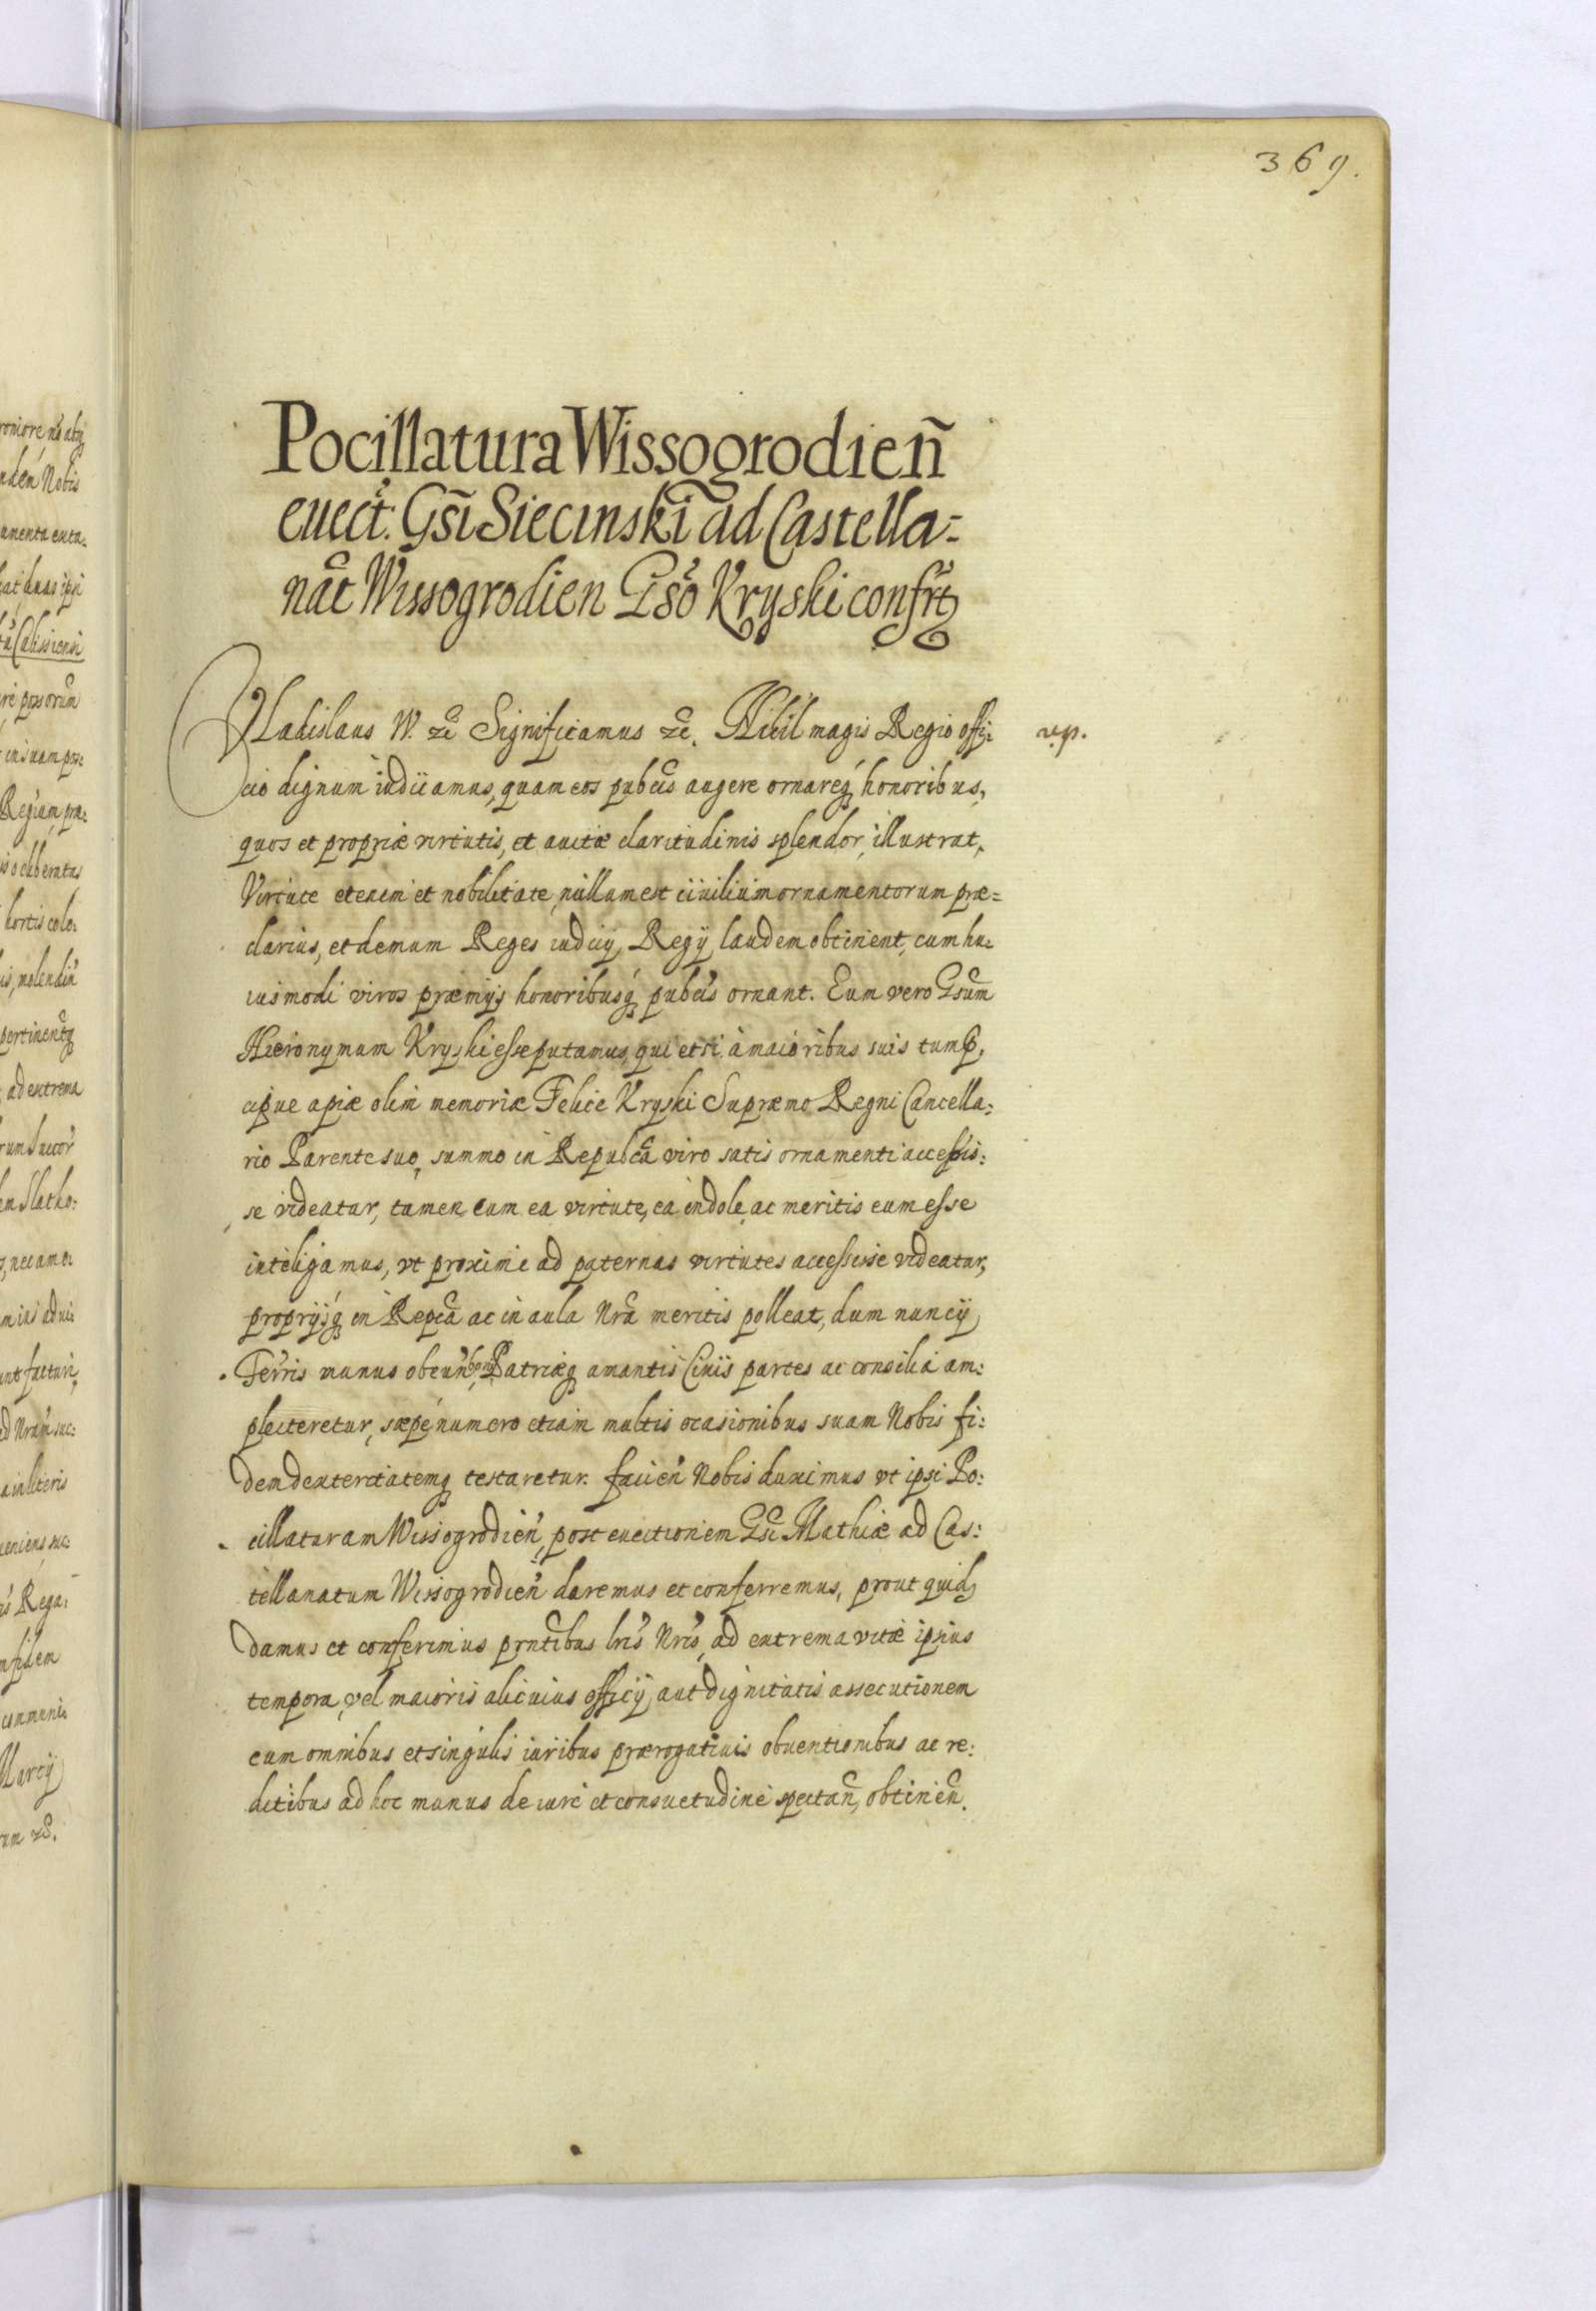 369.
Pocillatura Wissogrodien̄
euect: Gsi Siecinski ad Castella=
nat̃ Wissogrodien Gso Kryski confrt̃
Vladislaus W. &c Significamus &c. Nihil magis Regio offi: rep.
cio dignum iudicamus, quam eos pubcis augere ornareq́ honoribus,
quos et propriæ virtutis, et auitæ claritudinis splendor, illustrat,
Virtute etenim et nobilitate, nullum est ciuilium ornamentorum præ=
clarius, et demum Reges iudicij Regij laudem obtinent, cum hu=
iusmodi viros præmijs honoribusq́ pubcis ornant. Eum vero Gsum
Hieronymum Kryski esse putamus, qui etsi à maioribus suis tum p,
cipue a piæ olim memoriæ Felice Kryski Supræmo Regni Cancella:
rio Parente suo, summo in Repubca viro satis ornamenti accessis:
se videatur, tamen cum ea virtute, ea indole, ac meritis eum esse
inteligamus, vt proximè ad paternas virtutes accessisse videatur,
proprijsq́ in Repca ac in aula Nra meritis polleat, dum nuncij
Terris munus obeun̄, boni Patriæq amantis Ciuis partes ac consilia am:
plecteretur, sæpé numero etiam multis ocasionibus suam Nobis fi:
dem dexteritatemq testaretur. facien̄ Nobis duximus vt ipsi Po:
cillaturam Wissogrodien̄, post euectionem Gsi Mathiæ ad Cas:
tellanatum Wissogrodien̄ daremus et conferremus, prout quid
damus et conferimus prntibus lris Nris, ad extrema vitæ ipsius
tempora, vel maioris alicuius officij aut dignitatis assecutionem
cum omnibus et singulis iuribus prærogatiuis obuentionibus ac re:
ditibus ad hoc munus de iure et consuetudine spectan̄, obtinen̄.